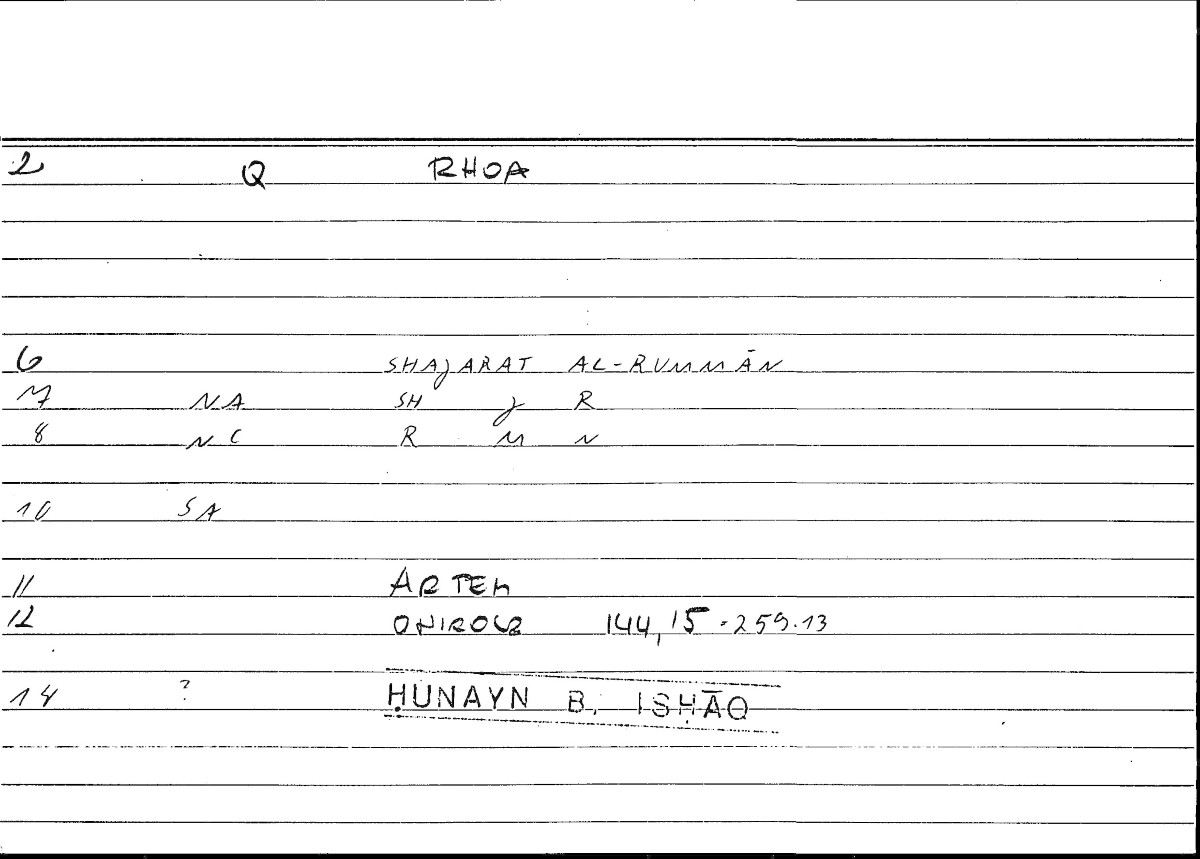 2 Q RHOA
6 SHAJARAT AL-RUMMĀN
7 NA SH J R
8 NC R M N
10 SA
11 ARTEM
12 ONIROCR 144,15 . 259.13
14 ? ḤUNAYN B. ISḤĀQ